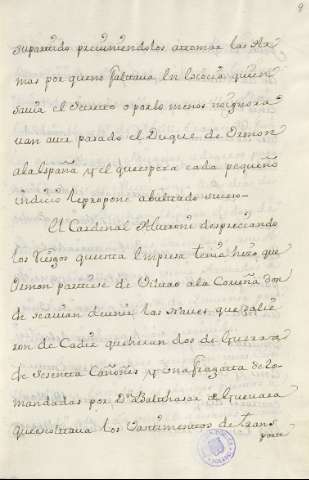 9
su partido previniendolos a tomar las Ar-
mas por que no faltava en Escocia quien
savia el Secreto o por lo menos no ignora
van aver pasado el Duque de Ormon
a la España y el que espera cada pequeño
indicio le propone abultado suceso.
El Cardenal Alveroni despreciando
los Riesgos que esta empresa tenia hizo que
Ormon partiese de Vilvao a la Coruña don
de se avian de unir las Naves que salie
ron de Cadiz que heran dos de Guerra
de sesenta Cañones y una fragata de lo-
mandadas por Dn Balthasar de Guevara
que escoltava los Vastimentos de trans
porte